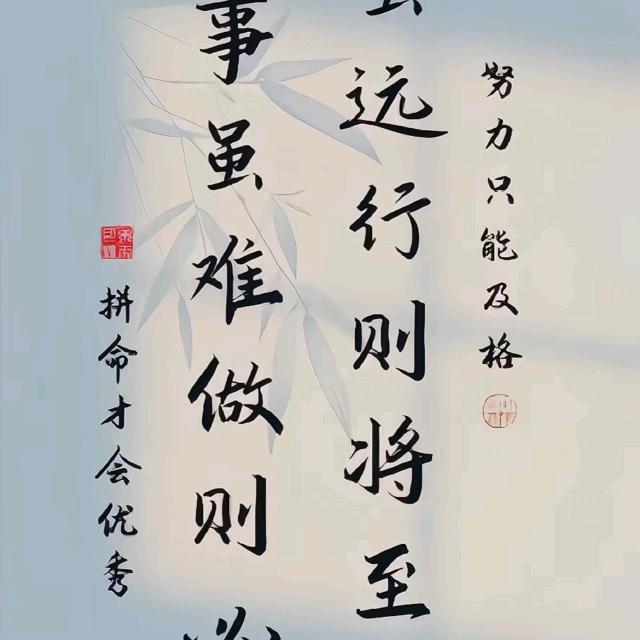 努力只能及格
远行则将至
事虽难做则
拼命才会优秀